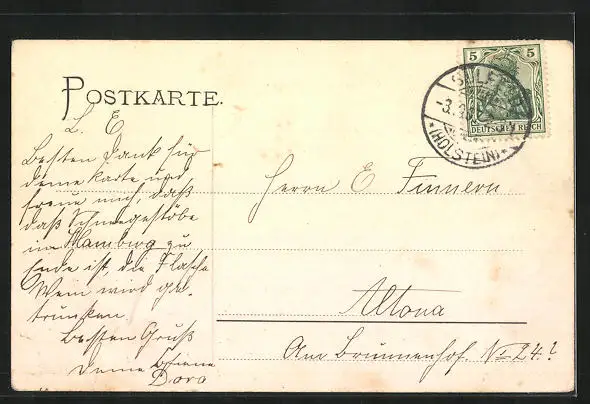 POSTKARTE.
L. E
Besten Dank für
deine Karte und
freue mich, daß
daß Schneegestöbe
im Hamburg zu
Ende ist, die Flasche
Wein wird ge-
trunken.
Besten Gruß
Deine
Dora
5 5
DEUTSCHES REICH
-3.3
*(HOLSTEIN)*
Herrn E Finnern
Altona
Am Brunnenhof. No 24.?